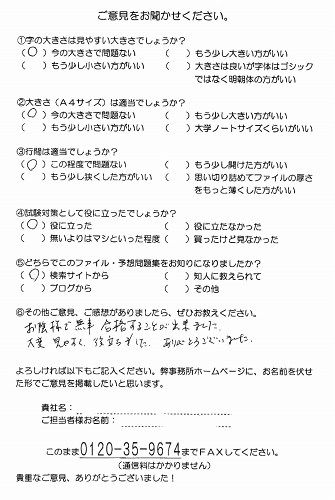 ご意見をお聞かせください。
①字の大きさは見やすい大きさでしょうか？
(○) 今の大きさで問題ない ( ) もう少し大きい方がいい
( ) もう少し小さい方がいい ( ) 大きさは良いが字体はゴシック
ではなく明朝体の方がいい
②大きさ（A4サイズ）は適当でしょうか？
(○) 今の大きさで問題ない ( ) もう少し大きい方がいい
( ) もう少し小さい方がいい ( ) 大学ノートサイズくらいがいい
③行間は適当でしょうか？
(○) この程度で問題ない ( ) もう少し開けた方がいい
( ) もう少し狭くした方がいい ( ) 思い切り詰めてファイルの厚さ
をもっと薄くした方がいい
④試験対策として役に立ったでしょうか？
(○) 役に立った ( ) 役に立たなかった
( ) 無いよりはマシといった程度 ( ) 買ったけど見なかった
⑤どちらでこのファイル・予想問題集をお知りになりましたか？
(○) 検索サイトから ( ) 知人に教えられて
( ) ブログから ( ) その他
⑥その他ご意見、ご感想がありましたら、ぜひお教えください。
お陰様で無事 合格することが出来ました。
大変 見やすく、役立ちました。ありがとうございました。
よろしければ以下もご記入ください。弊事務所ホームページに、お名前を伏せ
た形でご意見を掲載したいと思います。
貴社名：
ご担当者様お名前：
このまま0120-35-9674までFAXしてください。
（通信料はかかりません）
貴重なご意見、ありがとうございました！